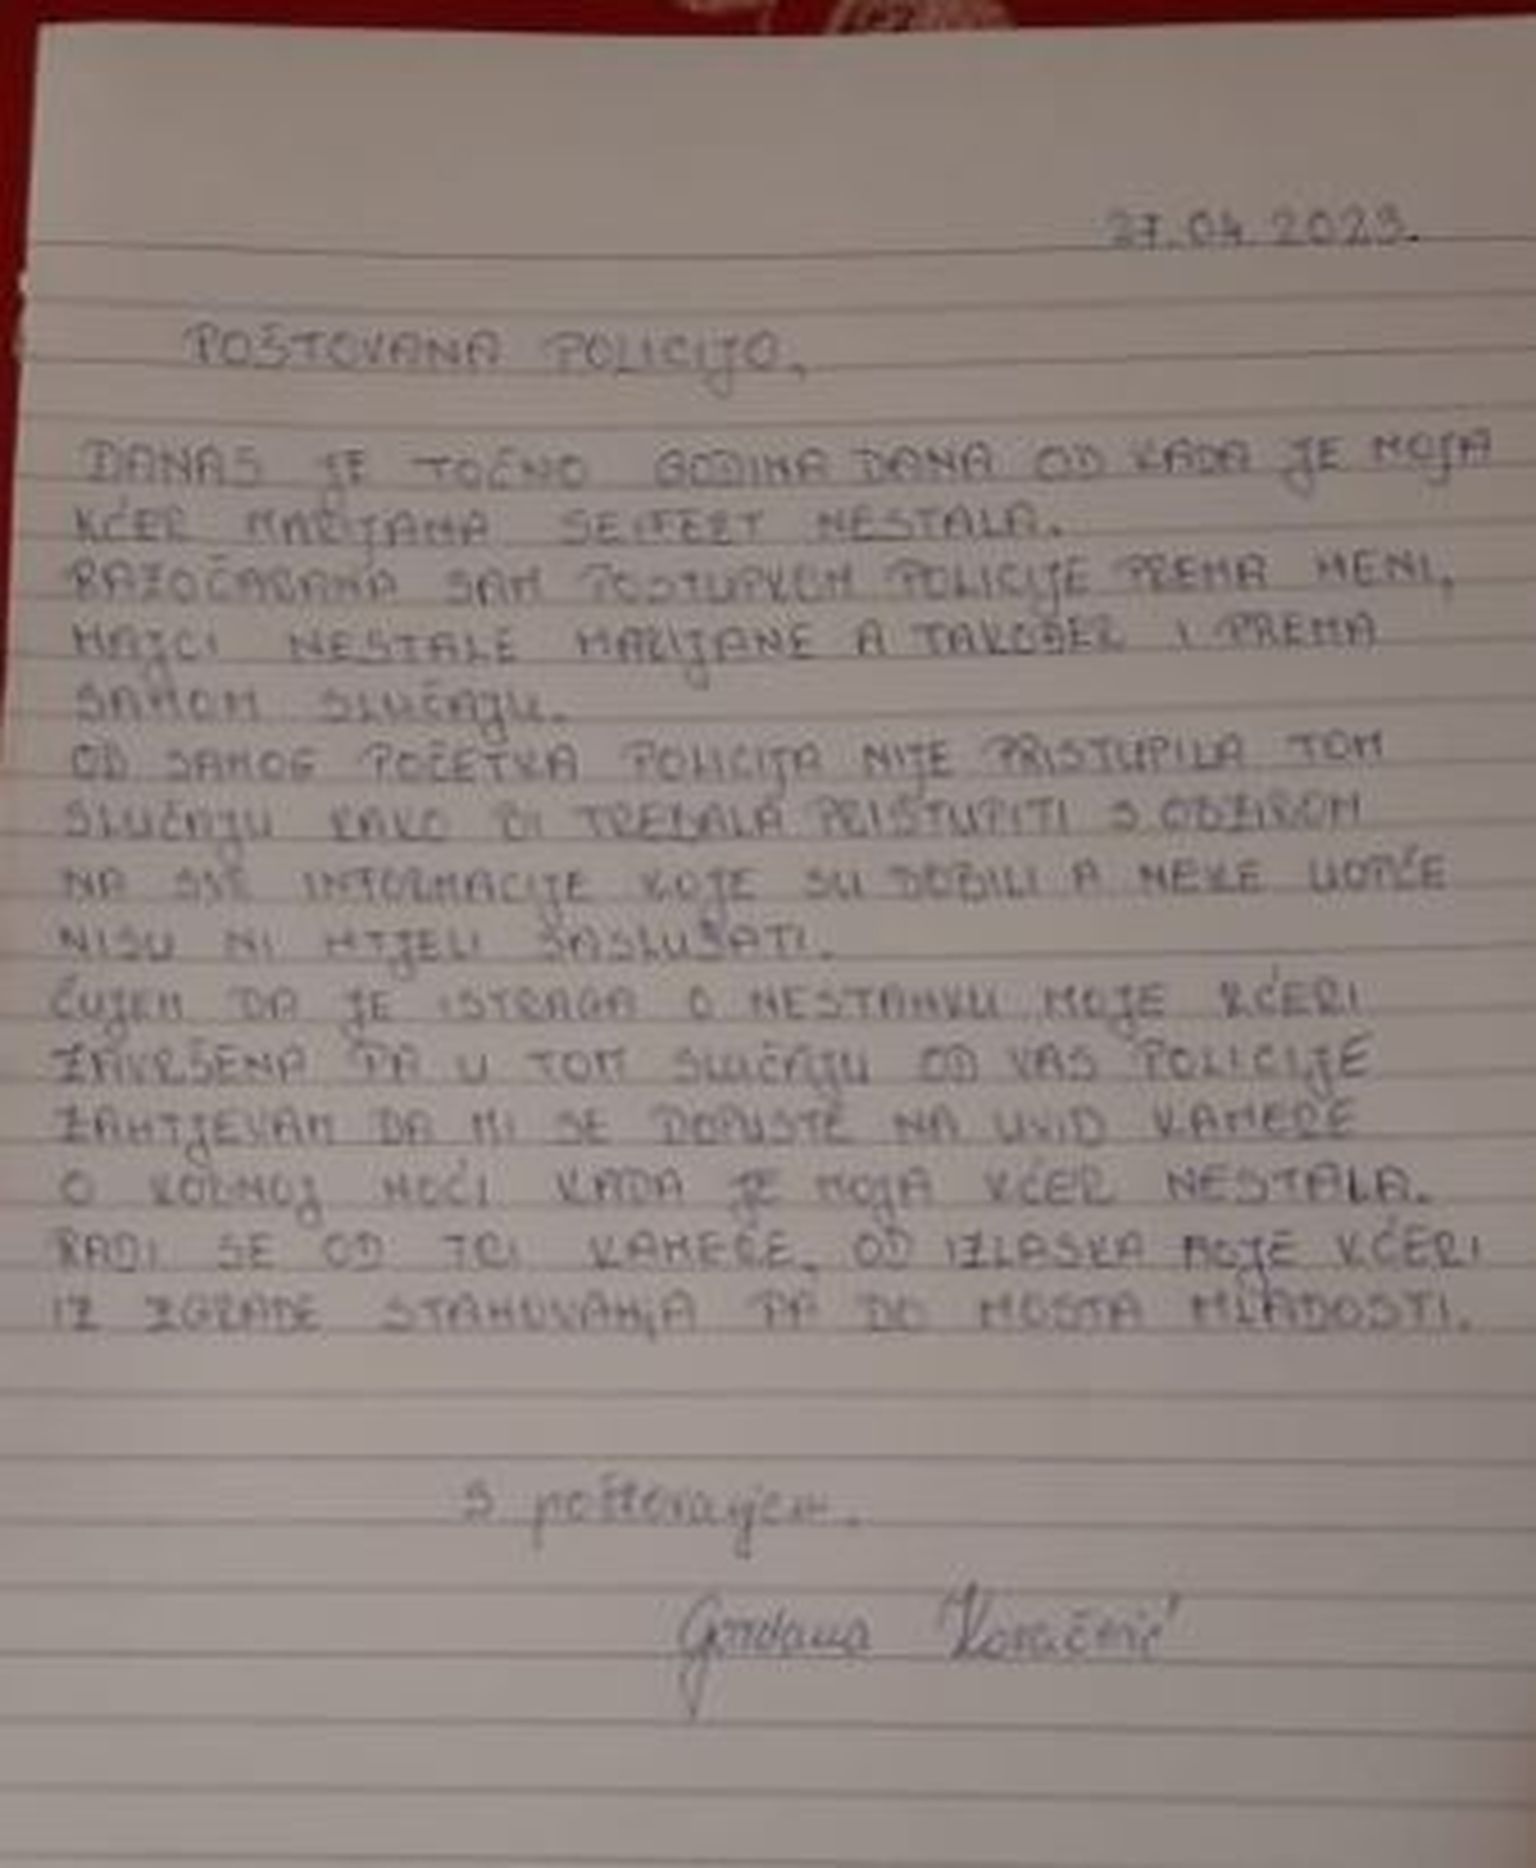 27.04 2023.
POŠTOVANA POLICIJO,
DANAS JE TOČNO GODINA DANA OD KADA JE MOJA
KĆER MARIJANA SEIFERT NESTALA.
RAZOČARANA SAM POSTUPKOM POLICIJE PREMA MENI,
MAJCI NESTALE MARIJANE A TAKOĐER I PREMA
SAMOM SLUČAJU.
OD SAMOG POČETKA POLICIJA NIJE PRISTUPILA TOM
SLUČAJU KAKO BI TREBALA PRISTUPITI S OBZIROM
NA SVE INFORMACIJE KOJE SU DOBILI A NEKE UOPĆE
NISU NI HTJELI SASLUŠATI.
ČUJEM DA JE ISTRAGA O NESTANKU MOJE KĆERI
ZAVRŠENA PA U TOM SLUČAJU OD VAS POLICIJE
ZAHTJEVAM DA MI SE DOPUSTE NA UVID KAMERE
O KOBNOJ NOĆI KADA JE MOJA KĆER NESTALA.
RADI SE OD TRI KAMERE. OD IZLASKA MOJE KĆERI
IZ ZGRADE STANOVANJA PA DO MOSTA MLADOSTI.
S poštovanjem.
Gordana